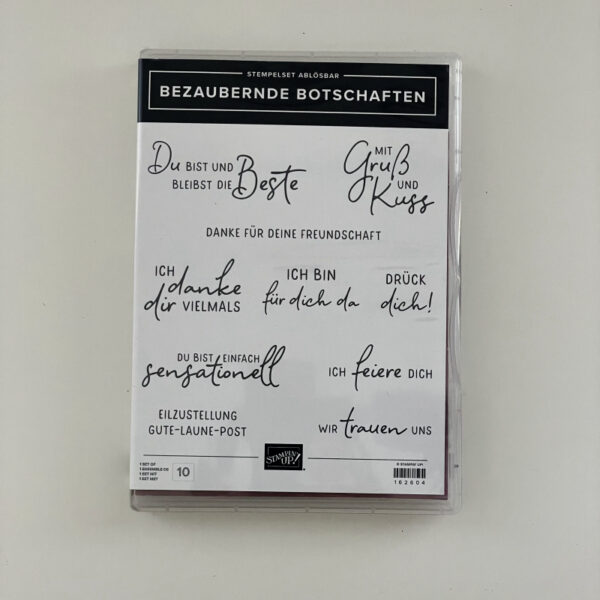 STEMPELSET ABLÖSBAR
BEZAUBERNDE BOTSCHAFTEN
Du BIST UND
BLEIBST DIE Beste
MIT
Gruß
UND
Kuss
DANKE FÜR DEINE FREUNDSCHAFT
ICH danke
dir VIELMALS
ICH BIN
für dich da
DRÜCK
dich!
DU BIST EINFACH
sensationell
ICH feiere DICH
EILZUSTELLUNG
GUTE-LAUNE-POST
WIR trauen UNS
1 SET OF
1 ENSEMBLE DE
1 SET MIT
1 SET MET
10
STAMPIN' UP!
© STAMPIN' UP!
162604